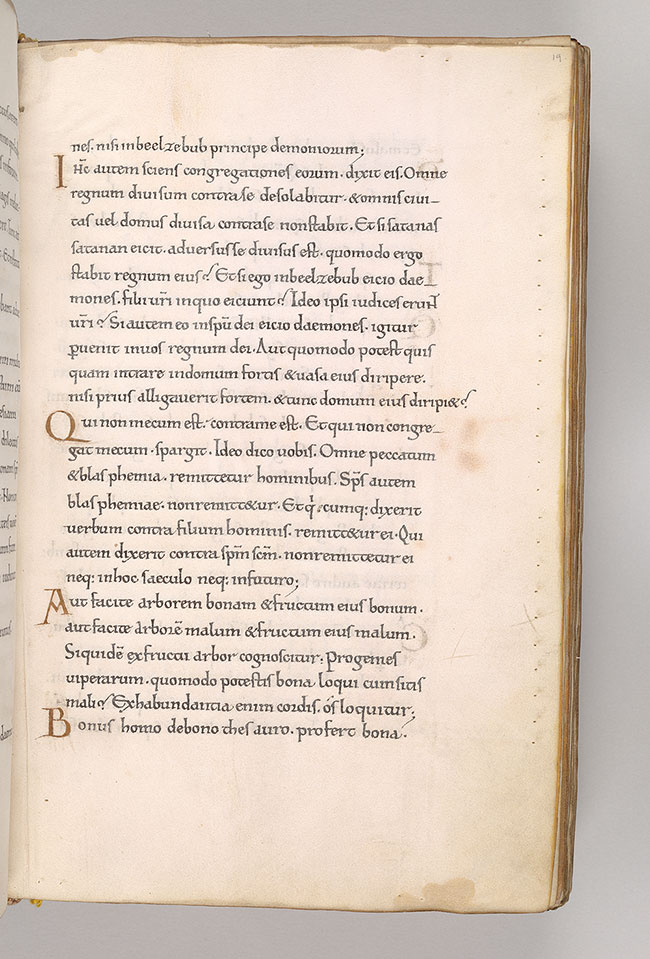 19
nes. nisi inbeelzebub principe demoniorum;
IH̅C autem sciens congregationes eorum. dixit eis. Omne
regnum diuisum contra se desolabitur. & omnis ciui-
tas uel domus diuisa contra se non stabit. Et si satanas
satanan eicit. aduersus se diuisus est. quomodo ergo
stabit regnum eius? Et si ego inbeelzebub eicio dae
mones. filii ur̅i inquo eiciunt? Ideo ipsi iudices erunt
ur̅i? Si autem eo inspu̅ dei eicio daemones. igitur
p̲uenit inuos regnum dei. Aut quomodo potest quis
quam intrare indomum fortis & uasa eius diripere.
nisi prius alligauerit fortem. & tunc domum eius diripi&?
Qui non mecum est. contra me est. Et qui non congre-
gat mecum. spargit. Ideo dico uobis. Omne peccatum
& blasphemia. remittetur hominibus. Sp̅s autem
blasphemiae. non remitt&ur. Et q̇cumq: dixerit
uerbum contra filium hominis. remitt&ur ei. Qui
autem dixerit contra sp̅m sc̅m. non remittetur ei
neq: inhoc saeculo neq: infuturo;
Aut facite arborem bonam & fructum eius bonum.
aut facite arbore̅ malum & fructum eius malum.
Siquide̅ exfructu arbor cognoscitur. Progenies
uiperarum. quomodo potestis bona loqui cum sitis
mali? Exhabundantia enim cordis. os loquitur;
Bonus homo debono thesauro. profert bona.